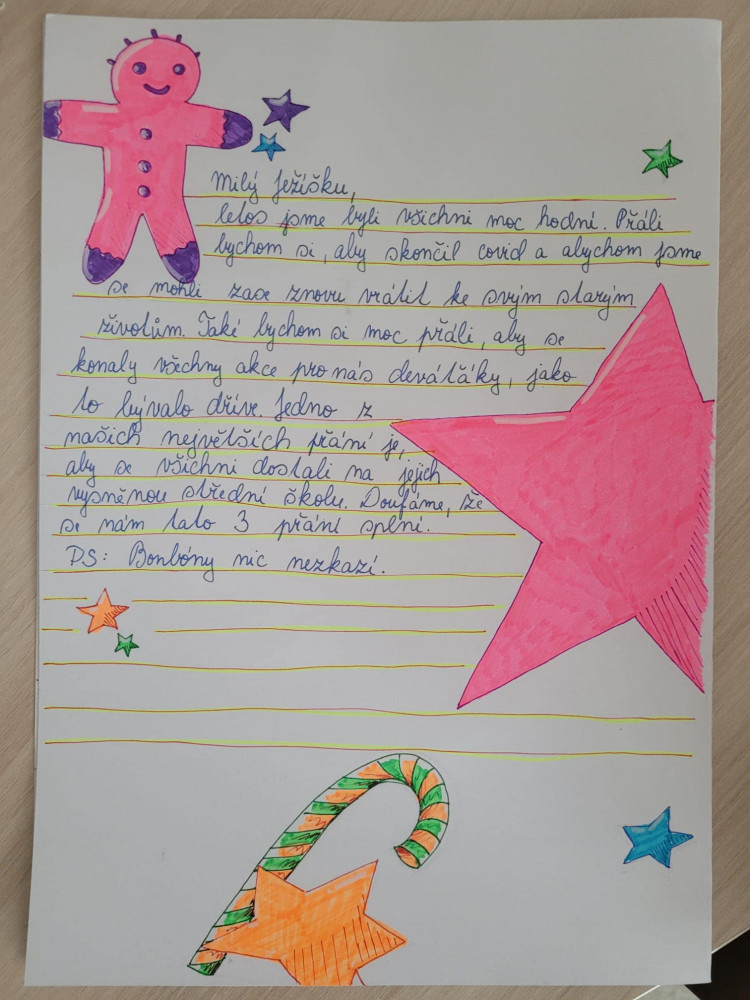 Milý Ježíšku,
letos jsme byli všichni moc hodní. Přáli
bychom si, aby skončil covid a abychom jsme
se mohli zase znovu vrátit ke svým starým
životům. Také bychom si moc přáli, aby se
konaly všechny akce pro nás deváťáky, jako
to bývalo dříve. Jedno z
našich největších přání je,
aby se všichni dostali na jejich
vysněnou střední školu. Doufáme, že
se nám tato 3 přání splní.
PS: Bonbóny nic nezkazí.